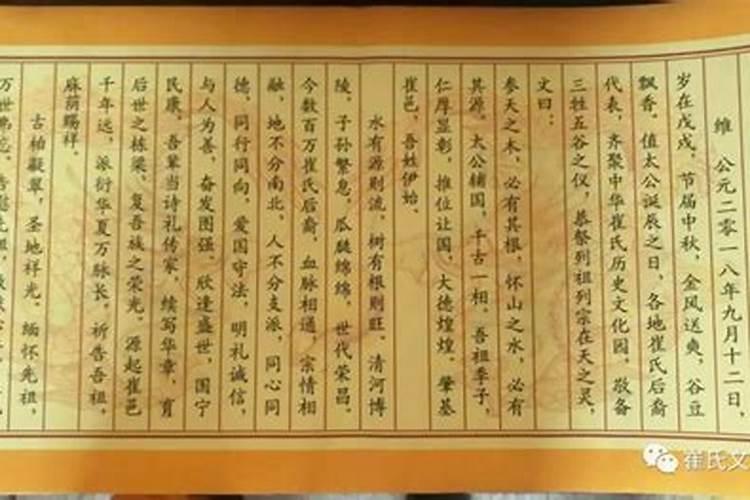 维 公元二零一八年九月十二日，
岁在戊戌，节届中秋，金风送爽，谷豆
飘香。值太公诞辰之日，各地崔氏后裔
代表，齐聚中华崔氏历史文化园，敬备
三牲五谷之仪，恭祭列祖列宗在天之灵，
文曰：
参天之木，必有其根，怀山之水，必有
其源。太公辅国，千古一相。吾祖季子，
仁厚显彰，推位让国，大德煌煌。肇基
崔邑，吾姓伊始。
水有源则流，树有根则旺。清河博
陵。子孙繁息，瓜瓞绵绵。世代荣昌。
今数百万崔氏后裔，血脉相通，宗情相
融，地不分南北，人不分支派，同心同
德，同行同向，爱国守法，明礼诚信，
与人为善，奋发图强。欣逢盛世，国宁
民康。吾辈当诗礼传家，续写华章，育
后世之栋梁。复吾族之荣光。源起崔邑
千年远，派衍华夏万脉长。祈告吾祖，
麻荫赐祥。
古柏凝翠，圣地祥光。缅怀先祖，
万世
崔氏文